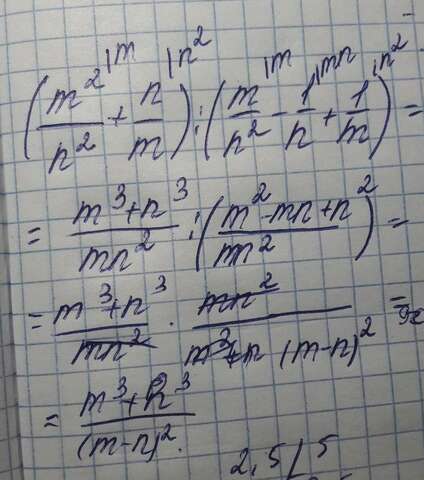 (m²/n² + n/m) : (m/n² - 1/n + 1/m) = |m |n² |m |mn |n²
= (m³+n³)/(mn²) : ((m²-mn+n²)/(mn²)) =
= (m³+n³)/(mn²) · mn²/((m-n)²) =
= (m³+n³)/((m-n)²).
2,5 | 5